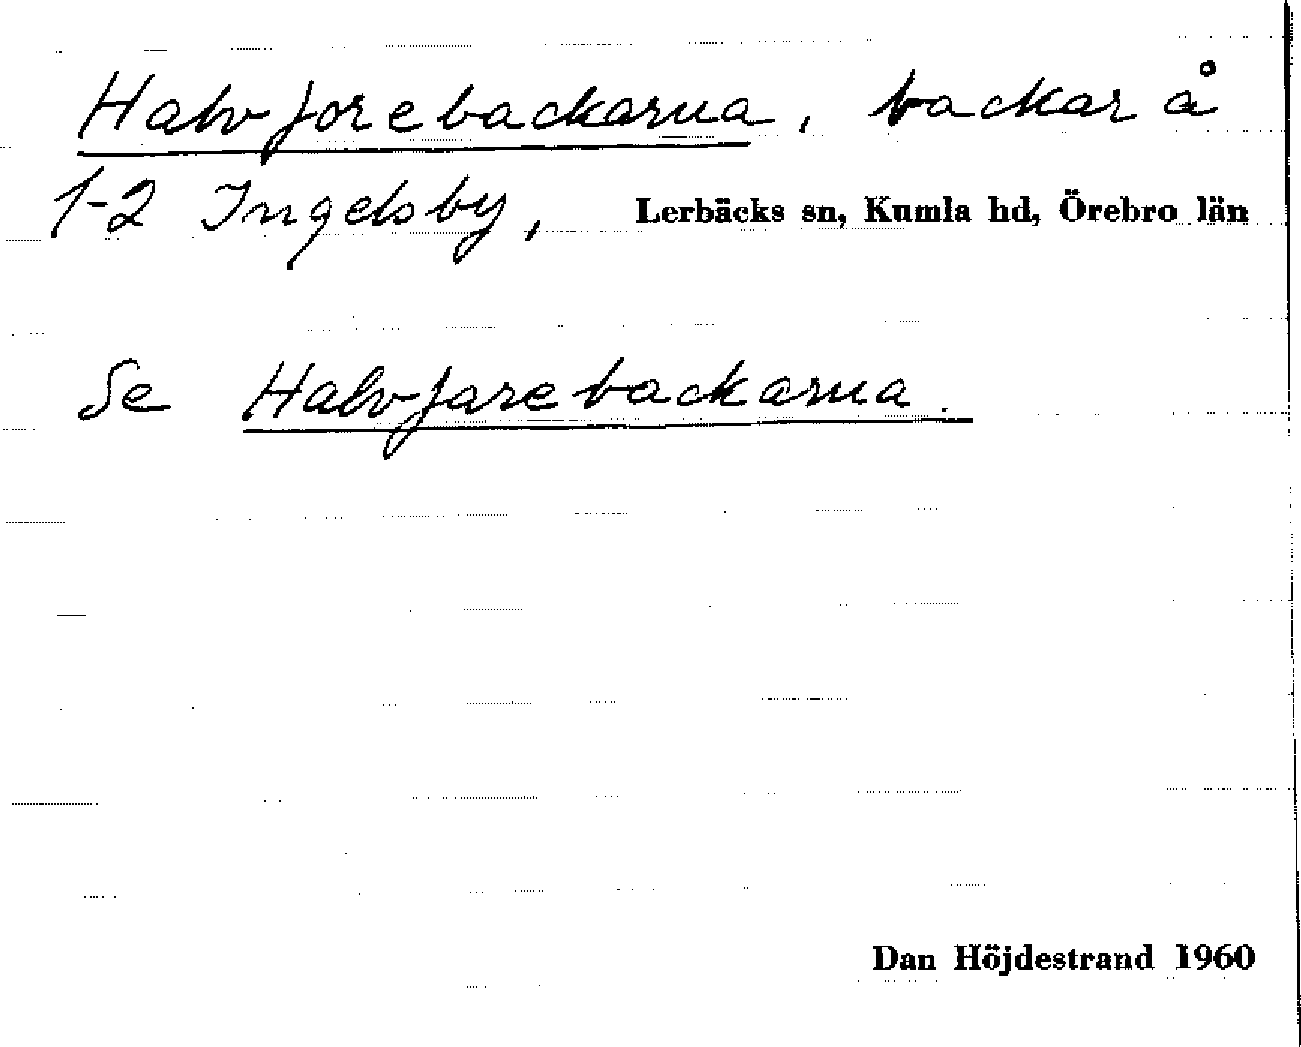 Halvforebackarna, backar å
1-2 Ingelsby, Lerbäcks sn, Kumla hd, Örebro län
Se Halvfarebackarna.
Dan Höjdestrand 1960